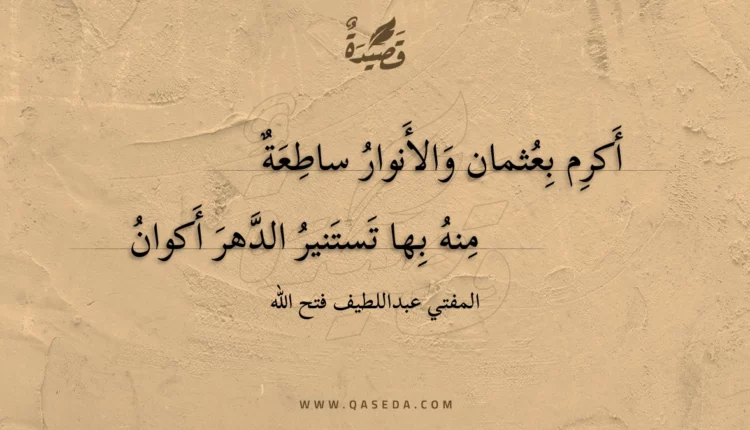 قَصِيْدَةٌ
أَكرِم بِعُثمان وَالأَنوارُ ساطِعَةٌ
مِنهُ بِها تَستَنيرُ الدَّهرَ أَكوانُ
المفتي عبداللطيف فتح الله
WWW.QASEDA.COM